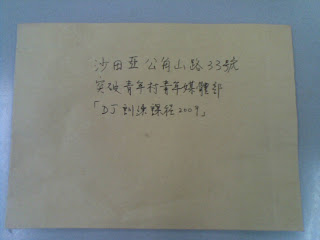 沙田亞公角山路33號
突破青年村青年媒體部
「DJ訓練課程2009」